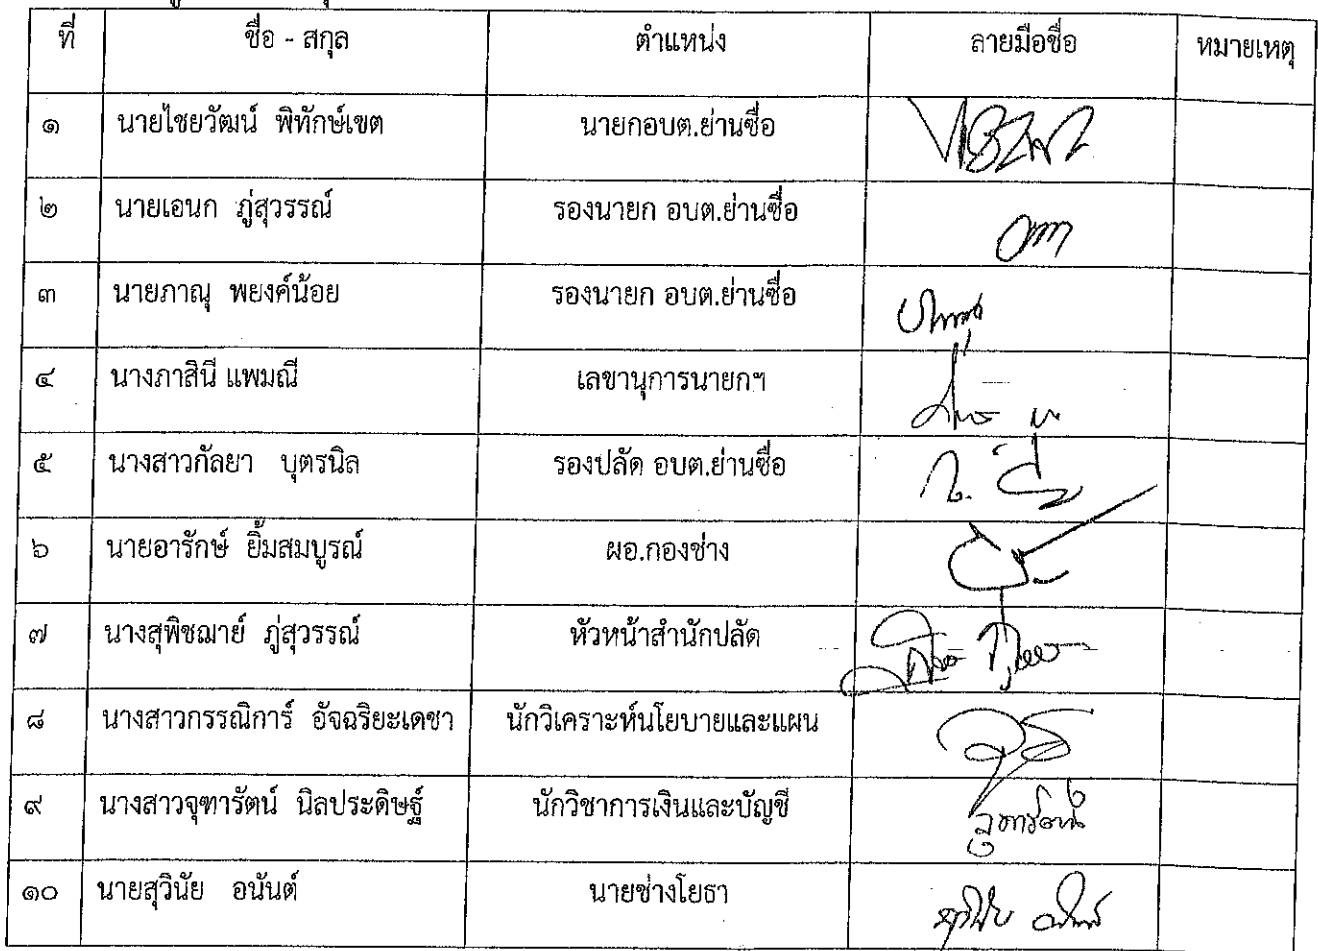 ที่ ชื่อ - สกุล ตำแหน่ง ลายมือชื่อ หมายเหตุ
๑ นายไชยวัฒน์ พิทักษ์เขต นายกอบต.ย่านซื่อ
๒ นายเอนก ภู่สุวรรณ์ รองนายก อบต.ย่านซื่อ
๓ นายภาณุ พยงค์น้อย รองนายก อบต.ย่านซื่อ
๔ นางภาสินี แพมณี เลขานุการนายกฯ
๕ นางสาวกัลยา บุตรนิล รองปลัด อบต.ย่านซื่อ
๖ นายอารักษ์ ยิ้มสมบูรณ์ ผอ.กองช่าง
๗ นางสุพิชฌาย์ ภู่สุวรรณ์ หัวหน้าสำนักปลัด
๘ นางสาวกรรณิการ์ อัจฉริยะเดชา นักวิเคราะห์นโยบายและแผน
๙ นางสาวจุฑารัตน์ นิลประดิษฐ์ นักวิชาการเงินและบัญชี จุฑารัตน์
๑๐ นายสุวินัย อนันต์ นายช่างโยธา สุวินัย อนันต์